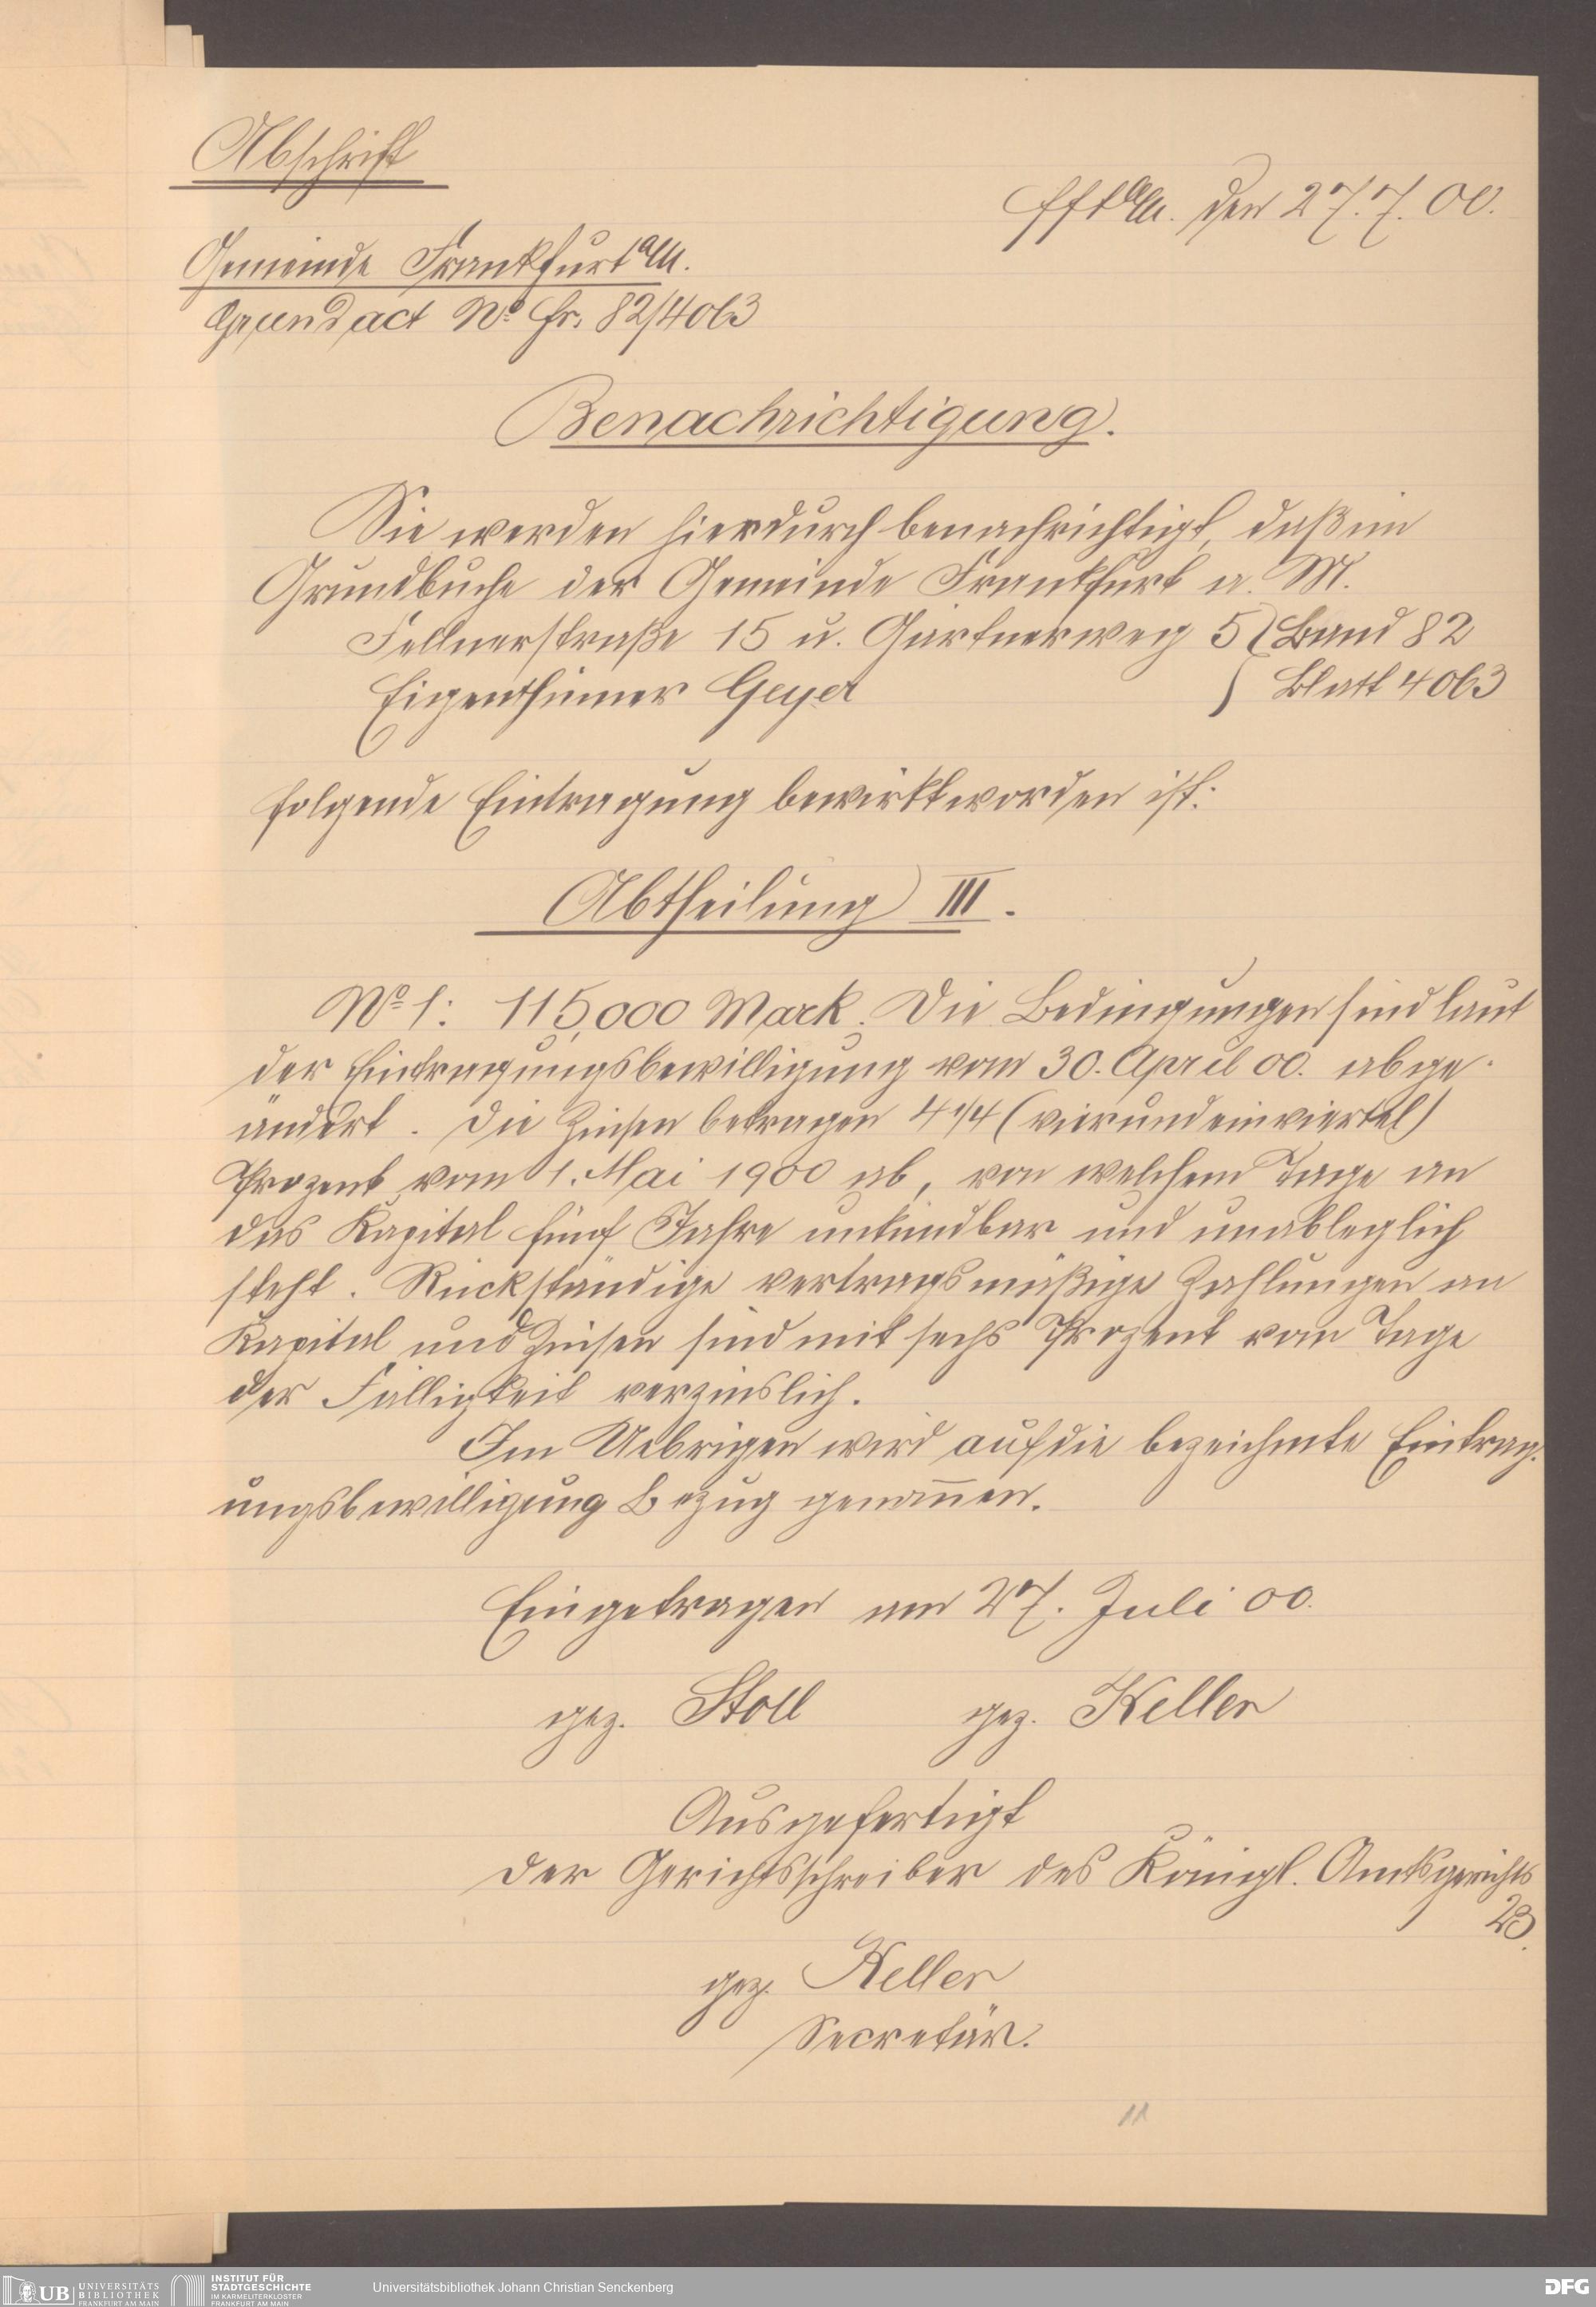 Abschrift
Ffta/M. den 27.7.00.
Gemeinde Frankfurt a/M.
Grundact No Fr. 82/4063
Benachrichtigung.
Sie werden hierdurch benachrichtigt, daß im
Grundbuche der Gemeinde Frankfurt a. M.
Fellnerstraße 15 u. Gärtnerweg 5 } Band 82
Eigenthümer Geyer } Blatt 4063
folgende Eintragung bewirkt worden ist:
Abtheilung III.
No 1: 115,000 Mark. Die Bedingungen sind laut
der Eintragungsbewilligung vom 30. April 00. abge-
ändert. Die Zinsen betragen 4 1/4 (vierundeinviertel)
Prozent vom 1. Mai 1900 ab, von welchem Tage an
das Kapital fünf Jahre unkündbar und unableglich
steht. Rückständige vertragsmäßige Zahlungen an
Kapital und Zinsen sind mit sechs Prozent vom Tage
der Fälligkeit verzinslich.
Im Uebrigen wird auf die bezeichnete Eintrag-
ungsbewilligung Bezug genom̅en.
Eingetragen am 27. Juli 00.
gez. Stoll gez. Keller
Ausgefertigt
Der Gerichtsschreiber des Königl. Amtsgerichts
23.
gez. Keller
Secretär.
11
UB UNIVERSITÄTS
BIBLIOTHEK
FRANKFURT AM MAIN
INSTITUT FÜR
STADTGESCHICHTE
IM KARMELITERKLOSTER
FRANKFURT AM MAIN
Universitätsbibliothek Johann Christian Senckenberg
DFG